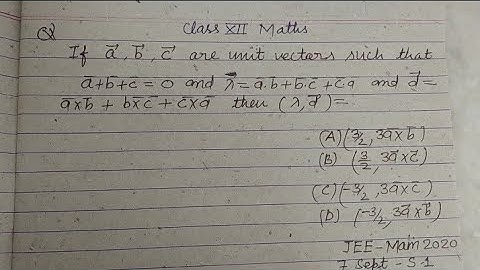 Q
Class XII Maths
If a⃗, b⃗, c⃗ are unit vectors such that
a̅+b̅+c̅ = 0 and λ⃗=a̅.b̅+b̅.c̅+c̅.a and d⃗=
a̅×b̅ + b̅×c̅ + c̅×a⃗ then (λ, d⃗)=
(A)(3/2, 3a̅×b̅)
(B) (3/2, 3a̅×c⃗)
(C)(-3/2, 3a̅×c)
(D) (-3/2, 3a⃗×b⃗)
JEE-Main 2020
7 Sept - S1